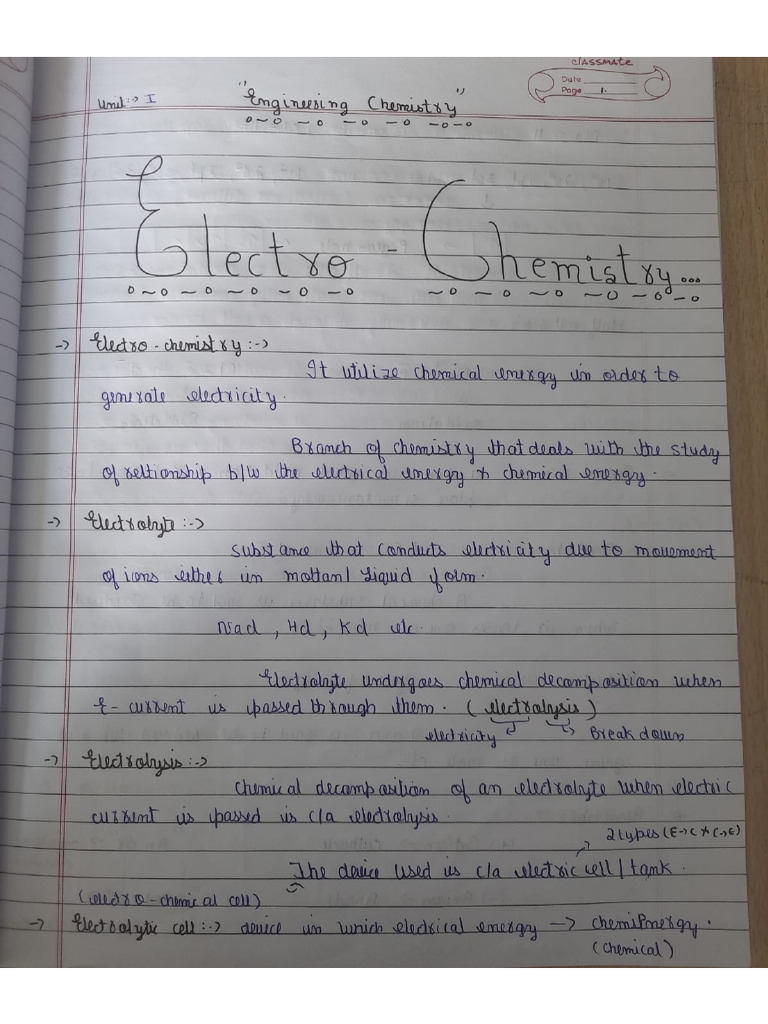 classmate
Date
Page 1.
Unit :→ I
"Engineering Chemistry"
Electro - Chemistry...
→ Electro - chemistry :→
It utilize chemical energy in order to
generate electricity.
Branch of chemistry that deals with the study
of reltionship b/w the electrical energy & chemical energy.
→ Electrolyte :→
substance that conducts electricity due to movement
of ions either in moltan/liquid form.
Nacl, Hcl, Kcl etc.
Electrolyte undergoes chemical decomposition when
E- current is passed through them. (electrolysis)
electricity Break down
→ Electrolysis :→
Chemical decomposition of an electrolyte when electric
current is passed is c/a electrolysis.
2 types (E→C & C→E)
The device used is c/a electric cell / tank.
(electro - chemical cell)
→ Electrolytic cell :→ device in which electrical energy → energy.
(chemical)